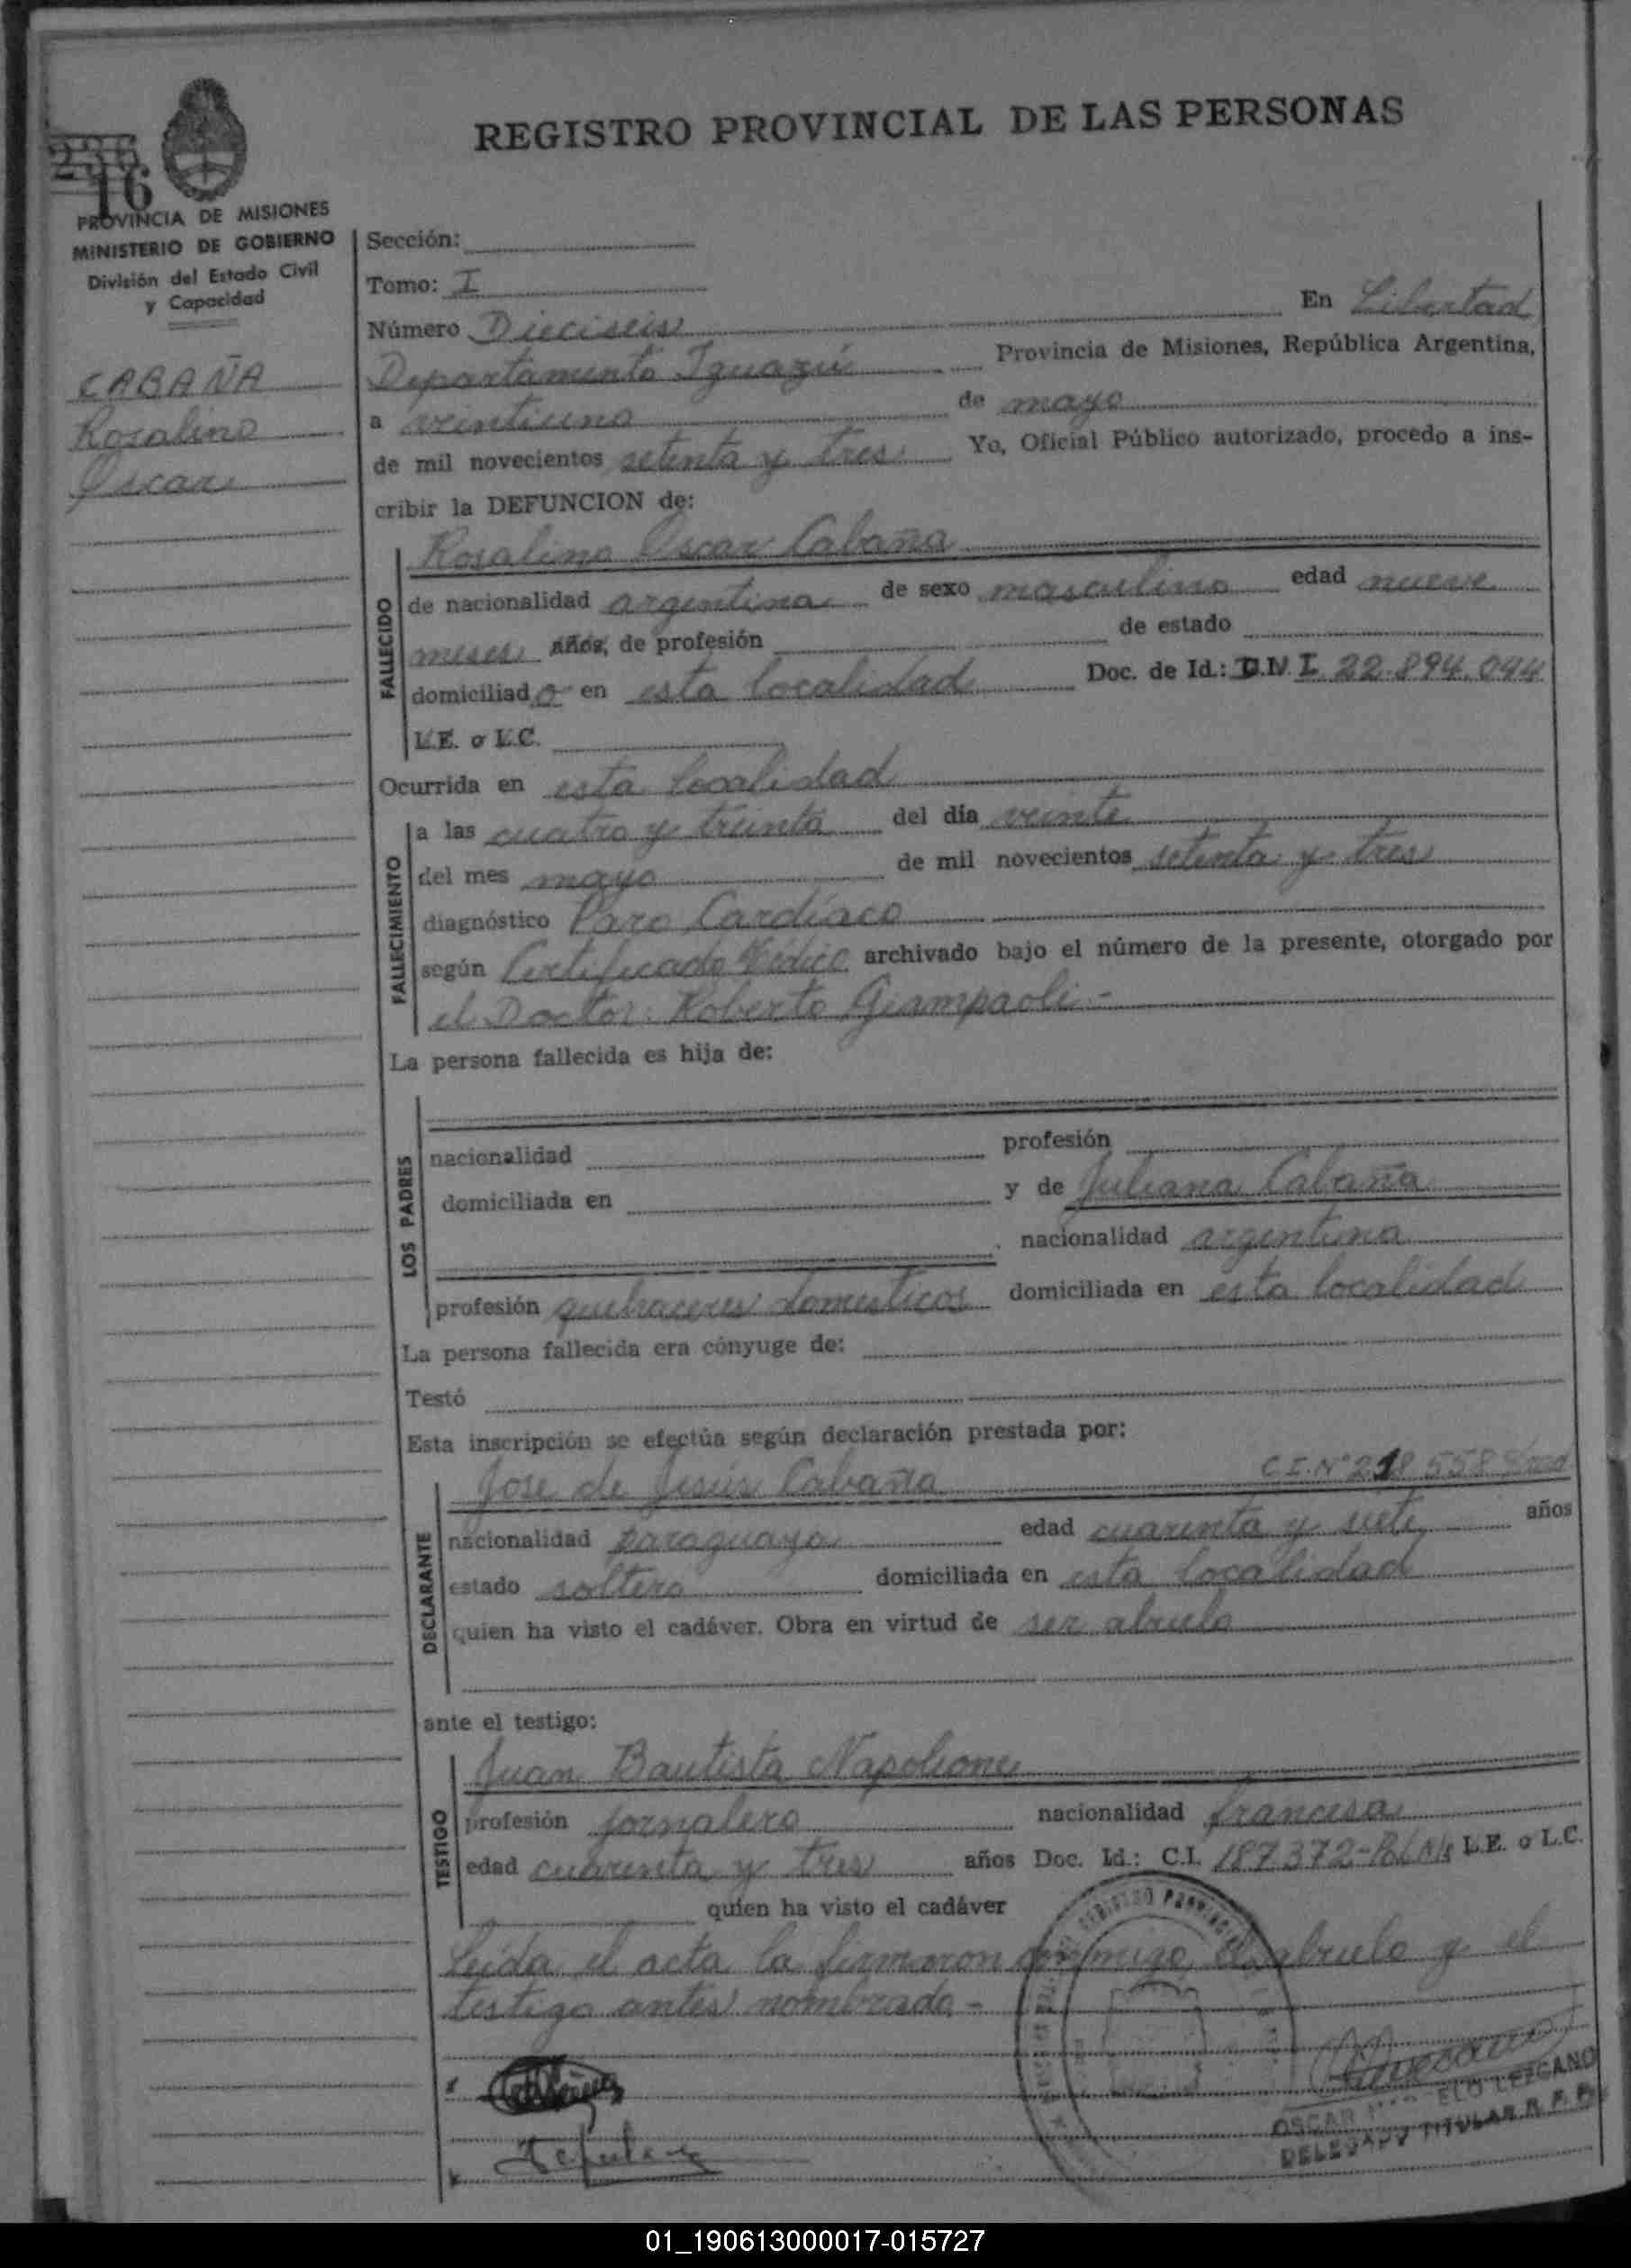 REGISTRO PROVINCIAL DE LAS PERSONAS
16
PROVINCIA DE MISIONES
MINISTERIO DE GOBIERNO
División del Estado Civil
y Capacidad
CABAÑA
Rosalino
Oscar
Sección:
Tomo: I
Número Dieciseis En Libertad
Departamento Iguazú Provincia de Misiones, República Argentina,
a veintiuno de mayo
de mil novecientos setenta y tres Yo, Oficial Público autorizado, procedo a ins-
cribir la DEFUNCION de:
FALLECIDO
Rosalino Oscar Cabaña
de nacionalidad argentina de sexo masculino edad nueve
meses años, de profesión de estado
domiciliado en esta localidad Doc. de Id.: D.N.I. 22.894.094
L.E. o L.C.
Ocurrida en esta localidad
FALLECIMIENTO
a las cuatro y treinta del día veinte
del mes mayo de mil novecientos setenta y tres
diagnóstico Paro Cardíaco
según Certificado Médico archivado bajo el número de la presente, otorgado por
el Doctor: Roberto Giampaoli -
La persona fallecida es hija de:
LOS PADRES
nacionalidad profesión
domiciliada en y de Juliana Cabaña
nacionalidad argentina
profesión quehaceres domesticos domiciliada en esta localidad
La persona fallecida era cónyuge de:
Testó
Esta inscripción se efectúa según declaración prestada por:
DECLARANTE
Jose de Jesús Cabaña C.I. Nº 218.558
nacionalidad paraguaya edad cuarenta y siete años
estado soltero domiciliada en esta localidad
quien ha visto el cadáver. Obra en virtud de ser abuelo
ante el testigo:
TESTIGO
Juan Bautista Napolione
profesión jornalero nacionalidad francesa
edad cuarenta y tres años Doc. Id.: C.I. 187.372 L.E. o L.C.
quien ha visto el cadáver
Leida el acta la firmaron conmigo el abuelo y el
testigo antes nombrado -
OSCAR LEZCANO
DELEGADO TITULAR R. P. P.
01_190613000017-015727